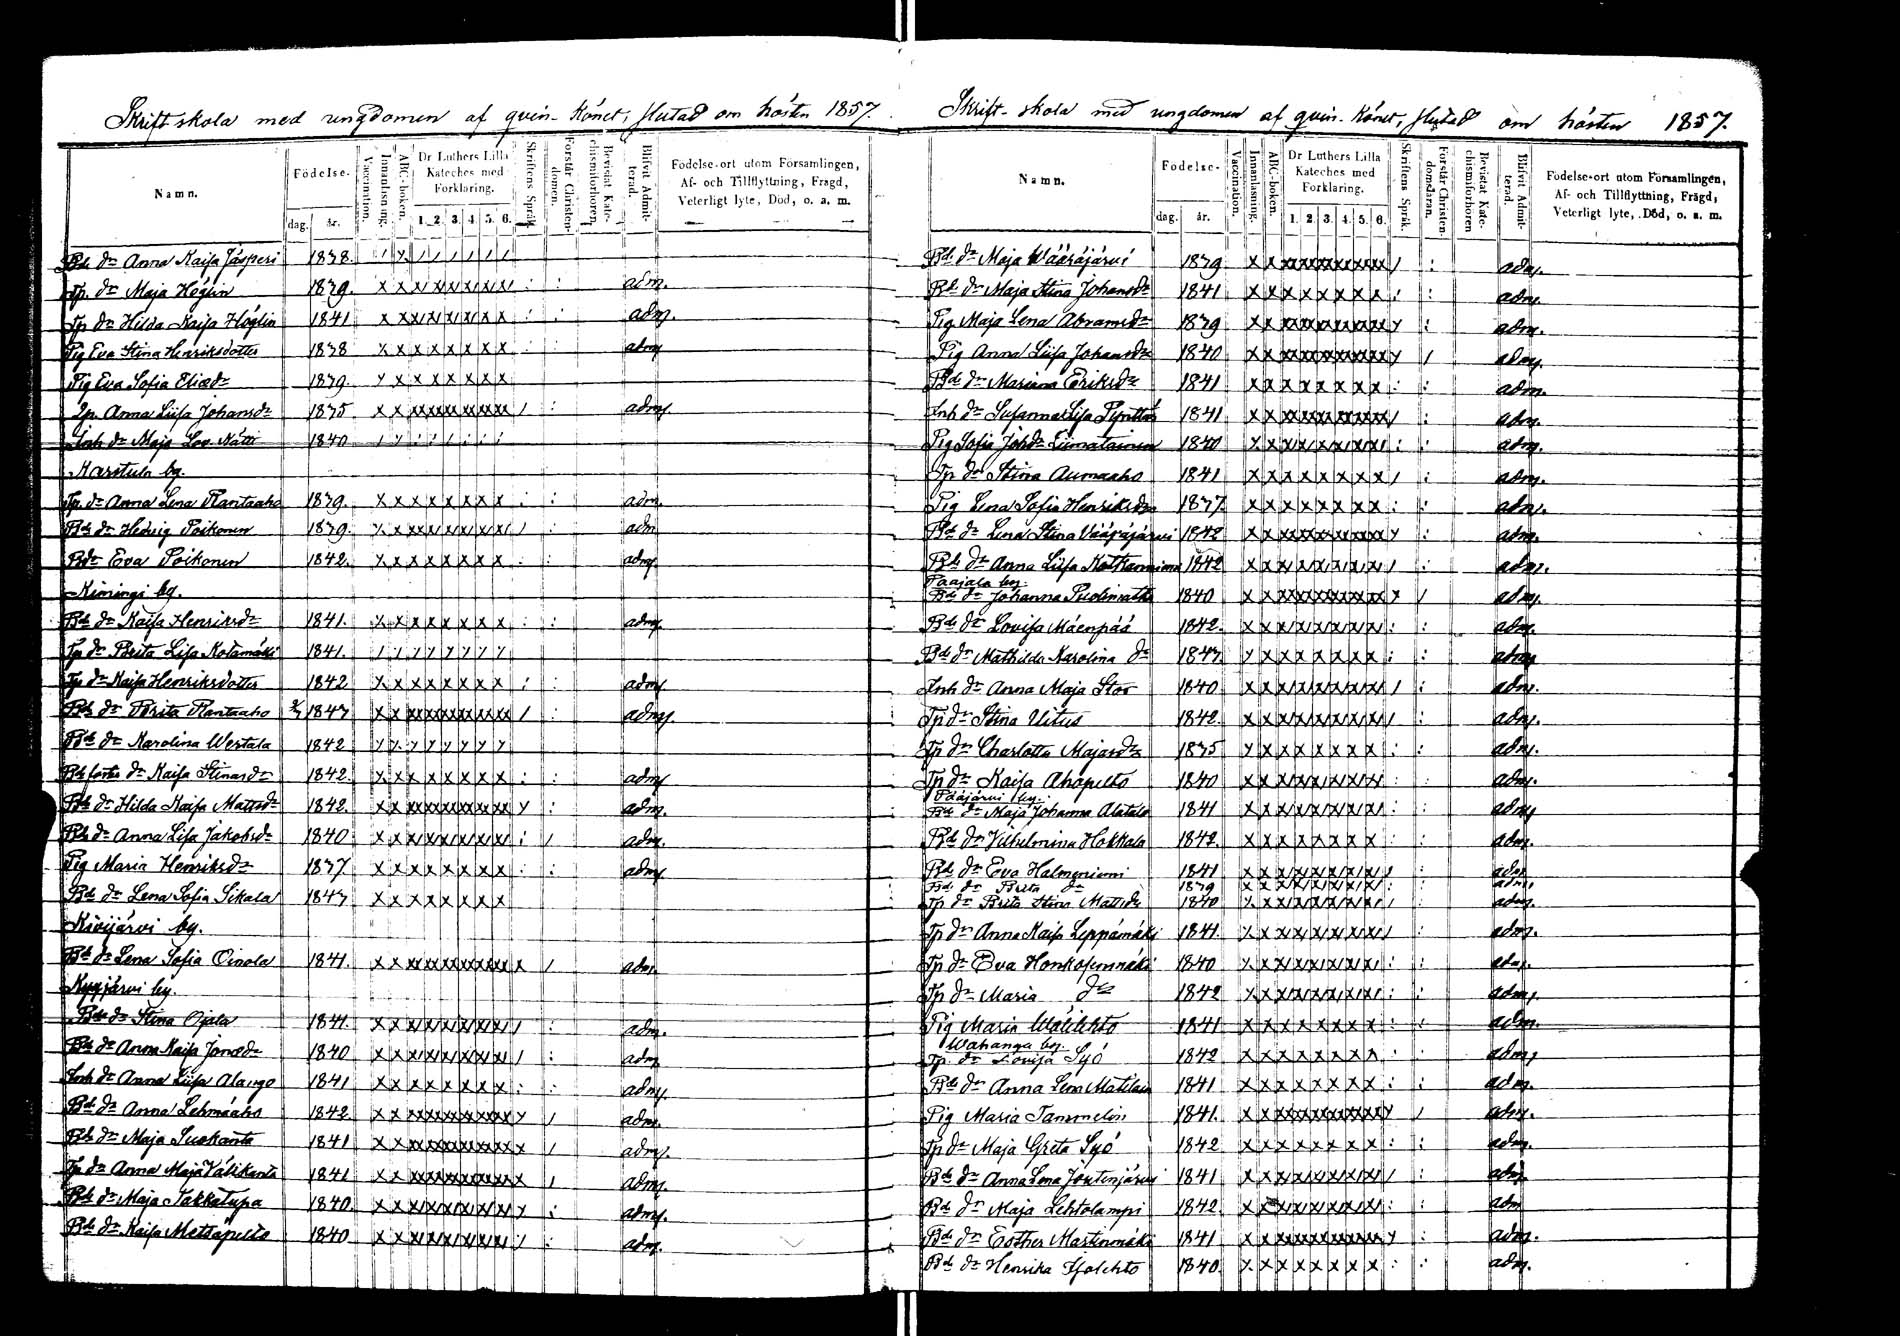 Skriftskola med ungdomen af qvin-könet, slutad om hösten 1857.
Namn.
Födelse-
dag. år.
Vaccination.
Innanläsning.
ABC-boken.
Dr Luthers Lilla
Kateches med
Förklaring.
1. 2. 3. 4. 5. 6.
Skriftens Språk.
Förstår Christen-
domen.
Bevistat Kate-
chismiförhören.
Blifvit Admit-
terad.
Födelse-ort utom Församlingen,
Af- och Tillflyttning, Frägd,
Veterligt lyte, Död, o. a. m.
Bd dr Anna Kaisa Jásperi 1838.
Tp. dr Maja Höglin 1839. adm.
Tp dr Hilda Kaisa Höglin 1841 adm.
Pig Eva Stina Henriksdotter 1838 adm
Pig Eva Sofia Eliædr 1839.
Anna Liisa Johansdr 1835 adm.
Inh dr Maja Lov. Nátti 1840
Karstula by.
Tp. dr Anna Lena Rantaaho 1839. adm.
Bd dr Hedvig Poikonen 1839. adm
Bdr Eva Poikonen 1842. adm.
Kimingi by.
Bd dr Kaisa Henriksdr 1841. adm.
Tp dr Brita Lisa Kotamáki 1841.
Tp dr Kaisa Henriksdotter 1842 adm
Bd dr Brita Rantaaho 1843 adm.
Bd dr Karolina Westala 1842
dr Kaisa Stinasdr 1842. adm
Bd dr Hilda Kaisa Mattsdr 1842. adm.
Bd dr Anna Lisa Jakobsdr 1840 adm.
Pig Maria Henriksdr 1837. adm
Bd dr Lena Sofia Sikala 1843
Kivijärvi by.
Bd dr Lena Sofia Oinola 1841. adm.
Kyyjärvi by.
Bd dr Stina Ojala 1841. adm.
Bd dr Anna Kaisa Jonædr 1840 adm
Inh dr Anna Liisa Alango 1841 adm.
Bd dr Anna Lehmäaho 1842. adm.
Bd dr Maja Suokanta 1841 adm.
Tp dr Anna Maja Välikanta 1841 adm
Bd dr Maja Takkatupa 1840. adm.
Bd dr Kaisa Metsápelto 1840 adm.
Skrift-skola med ungdomen af qvin-könet, slutad om hösten 1857.
Namn.
Födelse-
dag. år.
Vaccination.
Innanläsning.
ABC-boken.
Dr Luthers Lilla
Kateches med
Förklaring.
1. 2. 3. 4. 5. 6.
Skriftens Språk.
Förstår Christen-
domsläran.
Bevistat Kate-
chismiförhören
Blifvit Admit-
terad.
Födelse-ort utom Församlingen,
Af- och Tillflyttning, Frägd,
Veterligt lyte, Död, o. a. m.
Bd dr Maja Wäärájárvi 1839 adm.
Bd dr Maja Stina Johansdr 1841 adm.
Pig Maja Lena Abramsdr 1839 adm.
Pig Anna Liisa Johansdr 1840 adm.
Bd dr Mariana Eriksdr 1841 adm.
Inh dr Susanna Lisa 1841 adm.
Pig Sofia Johdr Liimatainen 1840 adm.
Tp dr Stina Aumaaho 1841 adm.
Pig Lena Sofia Henriksdr 1837. adm.
Bd dr Lena Stina Väárájárvi 1842 adm.
Bd dr Anna Liisa Kotkanniemi 1842 adm.
Paajala by.
Bd dr Johanna 1840 adm.
Bd dr Lovisa Máenpáá 1842. adm.
Bd dr Mathilda Karolina dr 1843. adm
Inh dr Anna Maja Stor 1840 adm.
Tp dr Stina Vitus 1842. adm.
Tp dr Charlotta Majasdr 1835 adm.
Tp dr Kaisa Ahopelto 1840 adm.
Pääjärvi by.
Bd dr Maja Johanna Alatalo 1841 adm.
Bd dr Vilhelmina Hokkala 1842. adm.
Bd dr Eva Halmeniemi 1841 adm
Bd dr Brita do 1839 adm.
Tp dr Brita Stina Mattsdr 1840 adm.
Tp dr Anna Kaisa Leppámáki 1841. adm.
Tp dr Eva Honkosenmáki 1840 adm.
Tp dr Maria do 1842 adm.
Pig Maria Wálilehto 1841 adm.
Wahanga by.
Tp. dr Lovisa Syö 1842 adm.
Bd dr Anna Lena Matilain 1841 adm.
Pig Maria Tammelin 1841. adm.
Tp dr Maja Greta Syö 1842 adm.
Bd dr Anna Lena 1841 adm.
Bd dr Maja Lehtolampi 1842. adm
Bd dr Esther Martinmáki 1841 adm.
Bd dr Henrika 1840. adm.